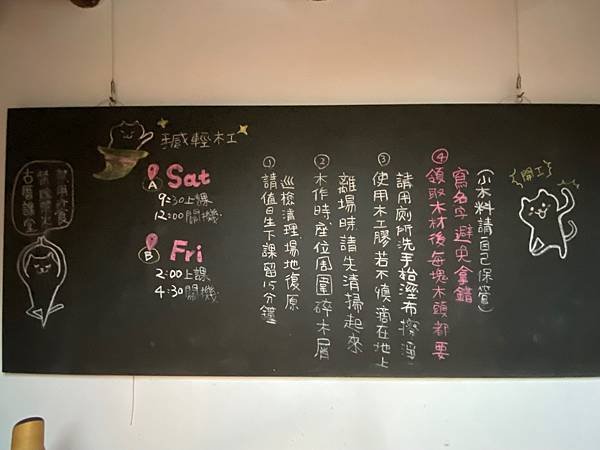 手感輕木工
A Sat
9:30上課
12:00關機
B Fri
2:00上課
4:30關機
① 請值日生下課留15分鐘
巡檢清理場地復原
② 木作時座位周圍碎木屑
離場時請先清掃起來
③ 使用木工膠若不慎滴在地上
請用廁所洗手枱溼布擦淨
④ 領取木材後每塊木頭都要
寫名字避免拿錯
(小木料請自己保管)
開工